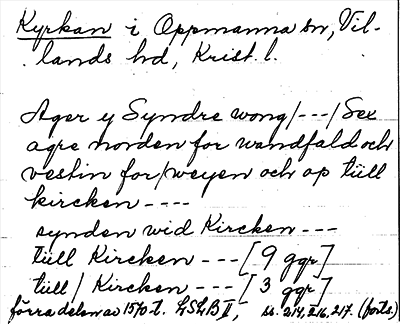 Kyrkan i Oppmanna sn, Vil-
lands hd, Krist. l.
Ager y Syndre wong/---/Sex
agre norden for wandfald och
vestin for/weyen och op tüll
kircken ----
synden wid Kircken ---
tüll Kircken ---[9 ggr]
tüll/Kircken ---[3 ggr]
förra delen av 1570-t. LSLB II, ss. 214, 216, 217. (forts.)